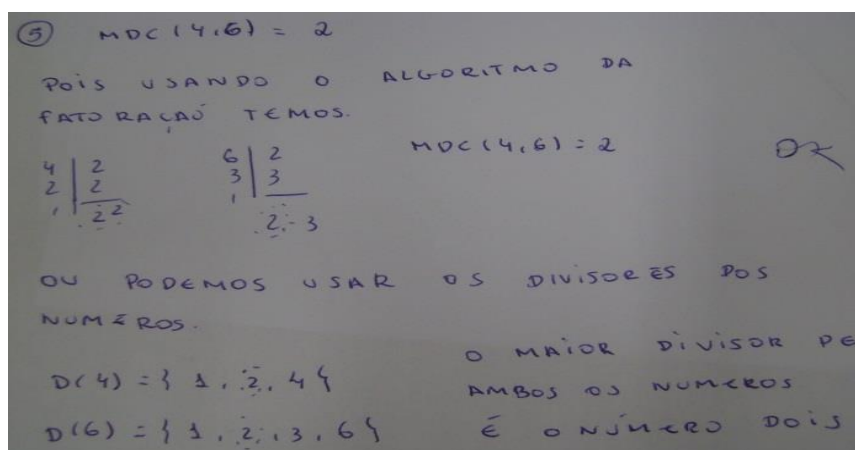 5 MDC (4,6) = 2
POIS USANDO O ALGORITMO DA
FATORAÇAÕ TEMOS.
4 | 2
2 | 2
1 | 2²
6 | 2
3 | 3
1
2.3
MDC (4,6) = 2
OK
OU PODEMOS USAR OS DIVISORES DOS
NUMEROS.
D(4) = { 1, 2, 4 }
D(6) = { 1, 2, 3, 6 }
O MAIOR DIVISOR DE
AMBOS OS NUMEROS
É O NÚMERO DOIS